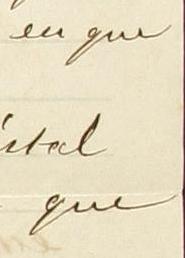 en que
istal
que